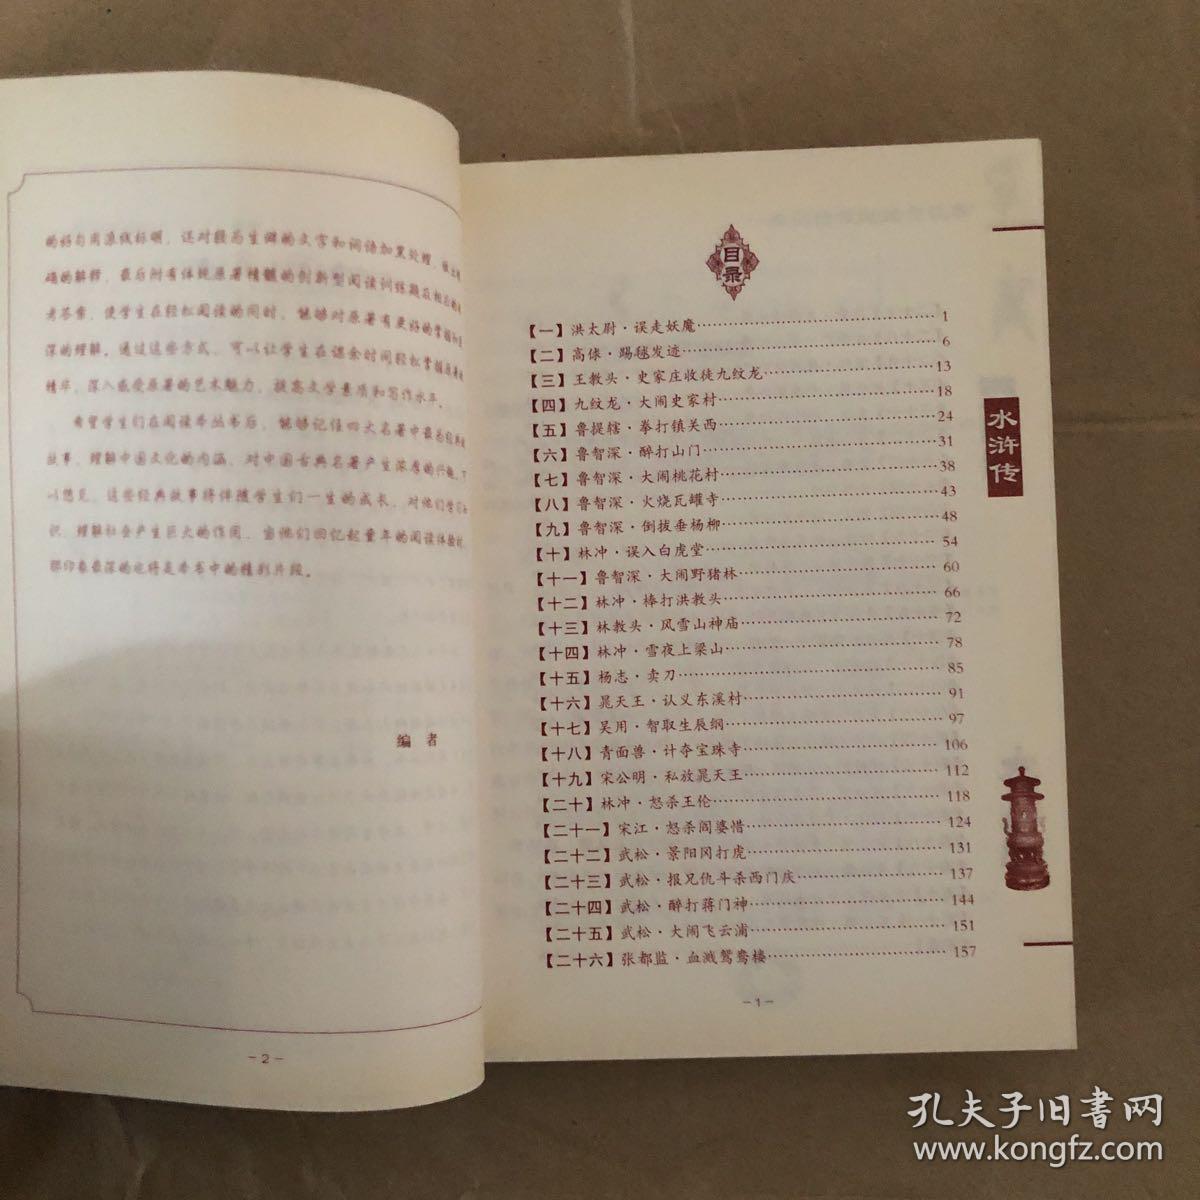 的好句用浪线标明，还对较为生僻的文字和词语加黑处理，做出
确的解释，最后附有体现原著精髓的创新型阅读训练题及相应的
考答案，使学生在轻松阅读的同时，能够对原著有更好的掌握和
深的理解。通过这些方式，可以让学生在课余时间轻松掌握原著
精华，深入感受原著的艺术魅力，提高文学素质和写作水平。
希望学生们在阅读本丛书后，能够记住四大名著中最为经典
故事，理解中国文化的内涵，对中国古典名著产生深厚的兴趣。可
以想见，这些经典故事将伴随学生们一生的成长，对他们学习
识、理解社会产生巨大的作用，当他们回忆起童年的阅读体验时，
那印象最深的也将是本书中的精彩片段。
编 者
－2－
目录
【一】洪太尉·误走妖魔……1
【二】高俅·踢毬发迹……6
【三】王教头·史家庄收徒九纹龙……13
【四】九纹龙·大闹史家村……18
【五】鲁提辖·拳打镇关西……24
【六】鲁智深·醉打山门……31
【七】鲁智深·大闹桃花村……38
【八】鲁智深·火烧瓦罐寺……43
【九】鲁智深·倒拔垂杨柳……48
【十】林冲·误入白虎堂……54
【十一】鲁智深·大闹野猪林……60
【十二】林冲·棒打洪教头……66
【十三】林教头·风雪山神庙……72
【十四】林冲·雪夜上梁山……78
【十五】杨志·卖刀……85
【十六】晁天王·认义东溪村……91
【十七】吴用·智取生辰纲……97
【十八】青面兽·计夺宝珠寺……106
【十九】宋公明·私放晁天王……112
【二十】林冲·怒杀王伦……118
【二十一】宋江·怒杀阎婆惜……124
【二十二】武松·景阳冈打虎……131
【二十三】武松·报兄仇斗杀西门庆……137
【二十四】武松·醉打蒋门神……144
【二十五】武松·大闹飞云浦……151
【二十六】张都监·血溅鸳鸯楼……157
－1－
水浒传
孔夫子旧书网
www.kongfz.com